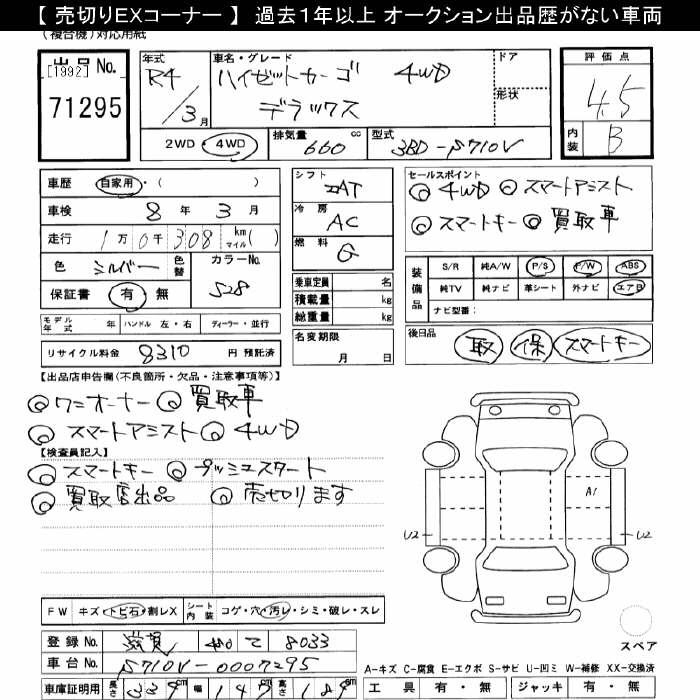 【 売切りEXコーナー 】 過去1年以上 オークション出品歴がない車両
(複合機)対応用紙
出品No.
[1992]
71295
年式
R4
/3月
車名・グレード
ハイゼットカーゴ 4WD
デラックス
ドア
形状
評価点
4.5
内装 B
2WD・4WD
排気量 660 cc
型式 3BD-S710V
車歴 自家用・( )
車検 8年 3月
走行 1万0千308 km マイル( )
色 シルバー 色替
カラーNo. S28
保証書 有・無
シフト
AT
冷房
AC
燃料
G
乗車定員 名
積載量 kg
総重量 kg
名変期限
月 日
セールスポイント
◎4WD ◎スマートアシスト
◎スマートキー ◎買取車
装備品
S/R 純A/W P/S P/W ABS
純TV 純ナビ 革シート 外ナビ エアB
ナビ型番:
モデル年式 年 ハンドル 左・右 ディーラー・並行
リサイクル料金 8310 円 預託済
後日品
取 保 スマートキー
【出品店申告欄(不良箇所・欠品・注意事項等)】
◎ワンオーナー ◎買取車
◎スマートアシスト ◎4WD
【検査員記入】
◎スマートキー ◎プッシュスタート
◎買取店出品 ◎売切ります
A1
U2
U2
スペア
FW キズ・トビ石・割レX シート内装 コゲ・穴・汚レ・シミ・破レ・スレ
登録No. 滋賀 480 て 8033
車台No. S710V-0007295
車庫証明用 長さ 339cm 幅 147cm 高さ 189cm
A-キズ C-腐食 E-エクボ S-サビ U-凹ミ W-補修 XX-交換済
工具 有・無 ジャッキ 有・無